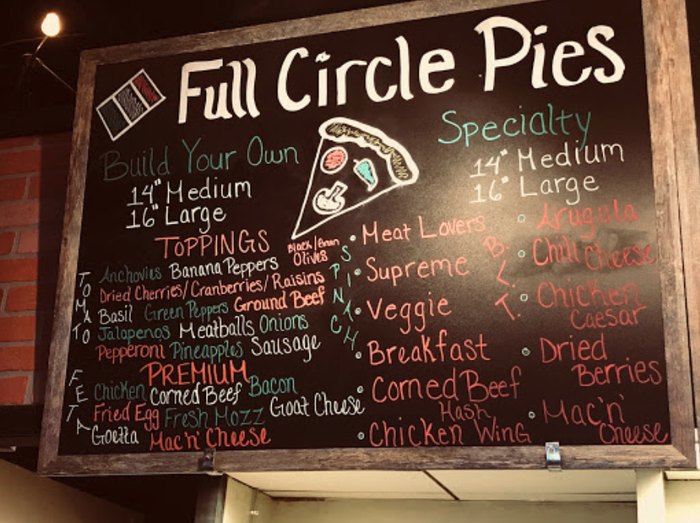 Full Circle Pies
Build Your Own
14" Medium
16" Large
TOPPINGS
Black/Green
Olives
Anchovies Banana Peppers
Dried Cherries/Cranberries/Raisins
Basil Green Peppers Ground Beef
Jalapenos Meatballs Onions
Pepperoni Pineapples Sausage
TOMATO
SPINACH
PREMIUM
Chicken Corned Beef Bacon
Fried Egg Fresh Mozz Goat Cheese
Goetta Mac'n' Cheese
FETA
Specialty
14" Medium
16" Large
• Meat Lovers
• Supreme
• Veggie
• Breakfast
• Corned Beef
Hash
• Chicken Wing
B.L.T.
• Arugula
• Chili Cheese
• Chicken
Caesar
• Dried
Berries
• Mac'n'
Cheese